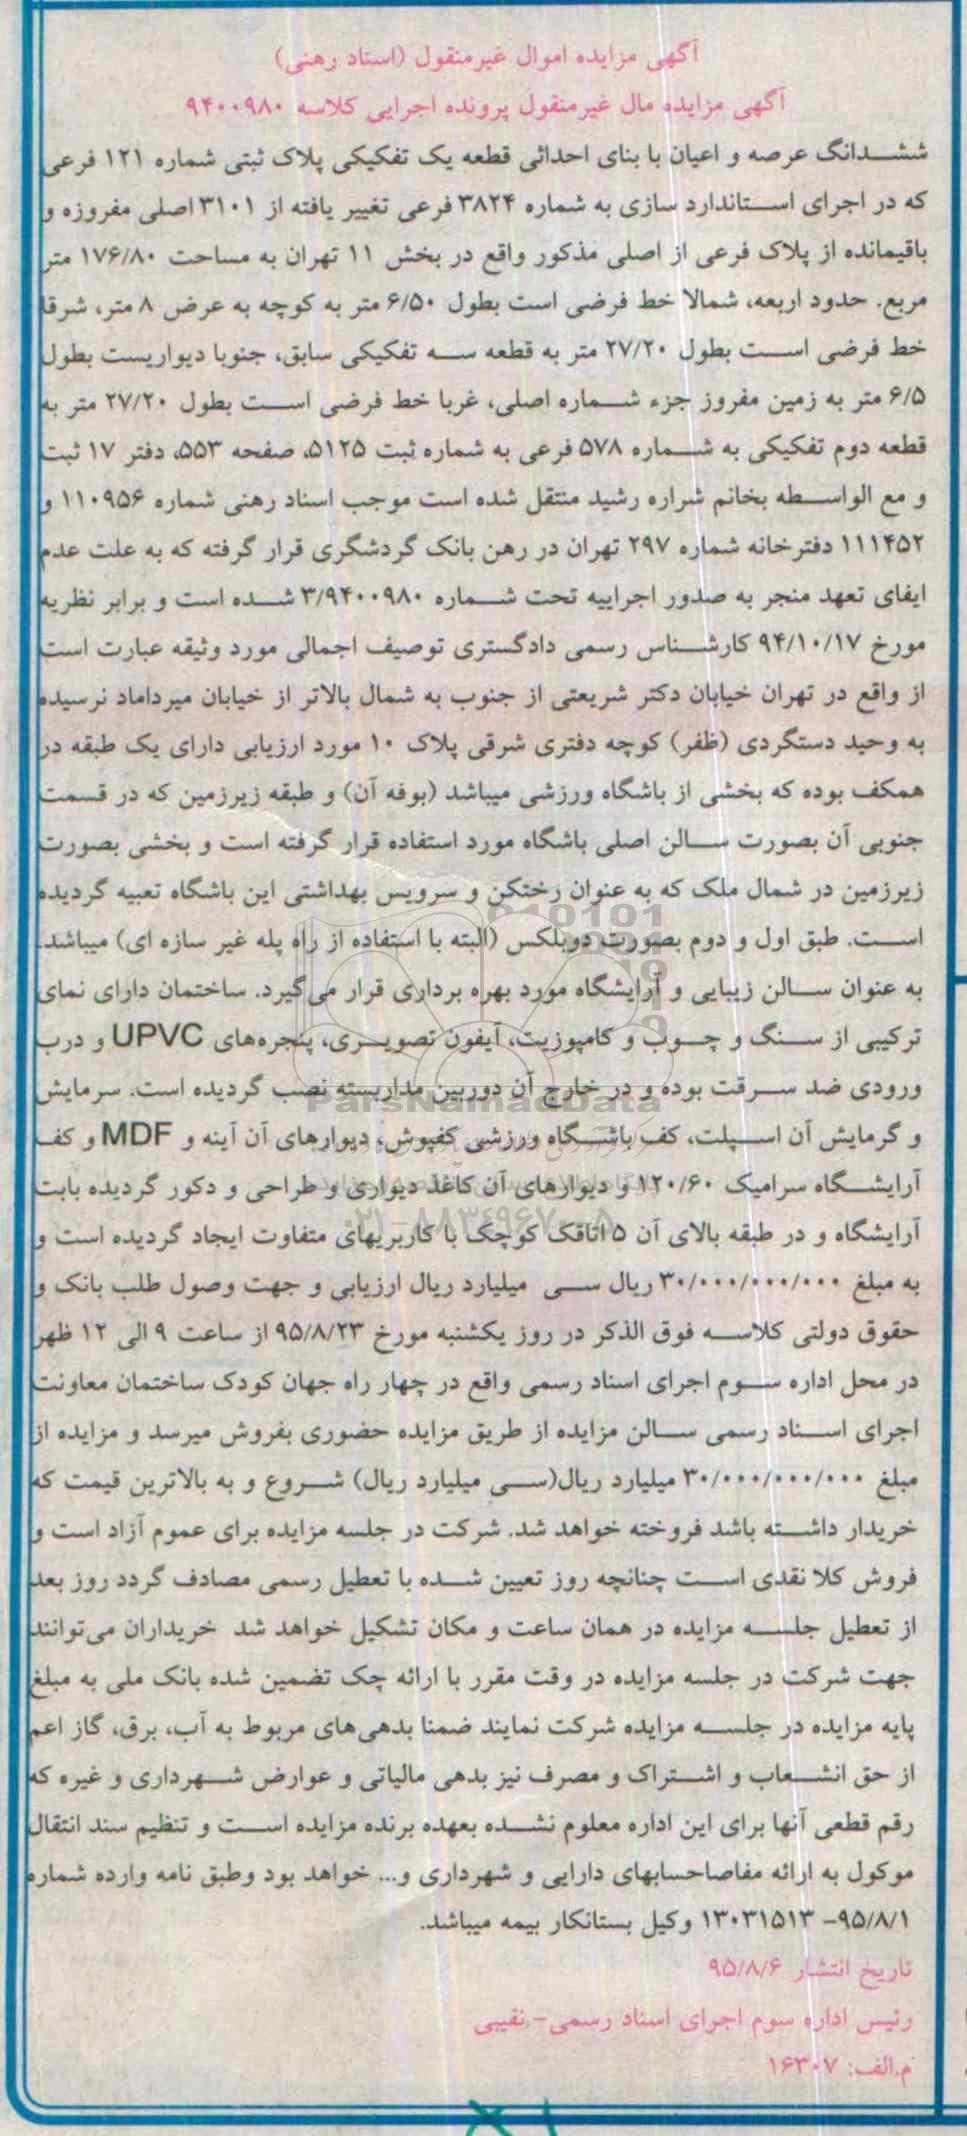 آگهی مزایده اموال غیرمنقول (اسناد رهنی)
آگهی مزایده مال غیرمنقول پرونده اجرایی کلاسه ۹۴۰۰۹۸۰
ششدانگ عرصه و اعیان با بنای احداثی قطعه یک تفکیکی پلاک ثبتی شماره ۱۲۱ فرعی
که در اجرای استاندارد سازی به شماره ۳۸۲۴ فرعی تغییر یافته از ۳۱۰۱ اصلی مفروزه و
باقیمانده از پلاک فرعی از اصلی مذکور واقع در بخش ۱۱ تهران به مساحت ۱۷۶/۸۰ متر
مربع. حدود اربعه، شمالا خط فرضی است بطول ۶/۵۰ متر به کوچه به عرض ۸ متر، شرقا
خط فرضی است بطول ۲۷/۲۰ متر به قطعه سه تفکیکی سابق، جنوبا دیواریست بطول
۶/۵ متر به زمین مفروز جزء شماره اصلی، غربا خط فرضی است بطول ۲۷/۲۰ متر به
قطعه دوم تفکیکی به شماره ۵۷۸ فرعی به شماره ثبت ۵۱۲۵، صفحه ۵۵۳، دفتر ۱۷ ثبت
و مع الواسطه بخانم شراره رشید منتقل شده است موجب اسناد رهنی شماره ۱۱۰۹۵۶ و
۱۱۱۴۵۲ دفترخانه شماره ۲۹۷ تهران در رهن بانک گردشگری قرار گرفته که به علت عدم
ایفای تعهد منجر به صدور اجراییه تحت شماره ۳/۹۴۰۰۹۸۰ شده است و برابر نظریه
مورخ ۹۴/۱۰/۱۷ کارشناس رسمی دادگستری توصیف اجمالی مورد وثیقه عبارت است
از واقع در تهران خیابان دکتر شریعتی از جنوب به شمال بالاتر از خیابان میرداماد نرسیده
به وحید دستگردی (ظفر) کوچه دفتری شرقی پلاک ۱۰ مورد ارزیابی دارای یک طبقه در
همکف بوده که بخشی از باشگاه ورزشی میباشد (بوفه آن) و طبقه زیرزمین که در قسمت
جنوبی آن بصورت سالن اصلی باشگاه مورد استفاده قرار گرفته است و بخشی بصورت
زیرزمین در شمال ملک که به عنوان رختکن و سرویس بهداشتی این باشگاه تعبیه گردیده
است. طبق اول و دوم بصورت دوبلکس (البته با استفاده از راه پله غیر سازه ای) میباشد.
به عنوان سالن زیبایی و آرایشگاه مورد بهره برداری قرار می‌گیرد. ساختمان دارای نمای
ترکیبی از سنگ و چوب و کامپوزیت، آیفون تصویری، پنجره‌های UPVC و درب
ورودی ضد سرقت بوده و در خارج آن دوربین مداربسته نصب گردیده است. سرمایش
ParsNamadData
و گرمایش آن اسپلت، کف باشگاه ورزشی کفپوش، دیوارهای آن آینه و MDF و کف
آرایشگاه سرامیک ۱۲۰/۶۰ و دیوارهای آن کاغذ دیواری و طراحی و دکور گردیده بابت
۰۲۱-۸۸۳۴۹۶۷۰-۵
آرایشگاه و در طبقه بالای آن ۵ اتاقک کوچک با کاربریهای متفاوت ایجاد گردیده است و
به مبلغ ۳۰/۰۰۰/۰۰۰/۰۰۰ ریال سی میلیارد ریال ارزیابی و جهت وصول طلب بانک و
حقوق دولتی کلاسه فوق الذکر در روز یکشنبه مورخ ۹۵/۸/۲۳ از ساعت ۹ الی ۱۲ ظهر
در محل اداره سوم اجرای اسناد رسمی واقع در چهار راه جهان کودک ساختمان معاونت
اجرای اسناد رسمی سالن مزایده از طریق مزایده حضوری بفروش میرسد و مزایده از
مبلغ ۳۰/۰۰۰/۰۰۰/۰۰۰ میلیارد ریال(سی میلیارد ریال) شروع و به بالاترین قیمت که
خریدار داشته باشد فروخته خواهد شد. شرکت در جلسه مزایده برای عموم آزاد است و
فروش کلا نقدی است چنانچه روز تعیین شده با تعطیل رسمی مصادف گردد روز بعد
از تعطیل جلسه مزایده در همان ساعت و مکان تشکیل خواهد شد خریداران می‌توانند
جهت شرکت در جلسه مزایده در وقت مقرر با ارائه چک تضمین شده بانک ملی به مبلغ
پایه مزایده در جلسه مزایده شرکت نمایند ضمنا بدهی‌های مربوط به آب، برق، گاز اعم
از حق انشعاب و اشتراک و مصرف نیز بدهی مالیاتی و عوارض شهرداری و غیره که
رقم قطعی آنها برای این اداره معلوم نشده بعهده برنده مزایده است و تنظیم سند انتقال
موکول به ارائه مفاصاحسابهای دارایی و شهرداری و... خواهد بود وطبق نامه وارده شماره
۹۵/۸/۱- ۱۳۰۳۱۵۱۳ وکیل بستانکار بیمه میباشد.
تاریخ انتشار ۹۵/۸/۶
رئیس اداره سوم اجرای اسناد رسمی- نقیبی
م.الف: ۱۶۳۰۷